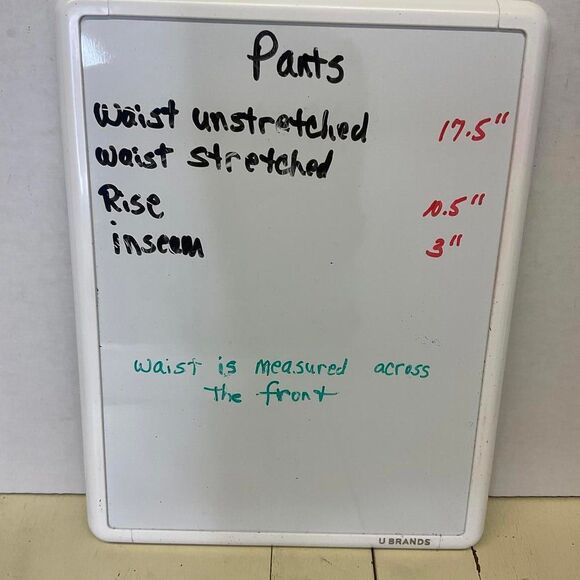 Pants
waist unstretched 17.5"
waist stretched
Rise 10.5"
inseam 3"
waist is measured across
the front
U BRANDS